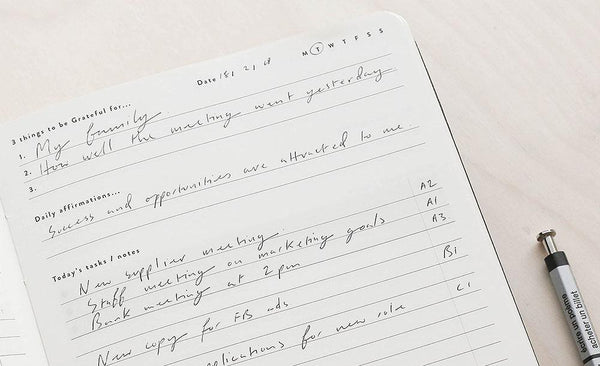 Date 18/ 2/ 18 M T W T F S S
3 things to be Grateful for...
1. My family
2. How well the meeting went yesterday
3.
Daily affirmations...
Success and opportunities are attracted to me.
Today's tasks / notes
New supplier meeting. A2
Staff meeting on marketing goals A1
Bank meeting at 2pm A3
New copy for FB ads B1
applications for new role C1
écrire un poème
acheter un billet